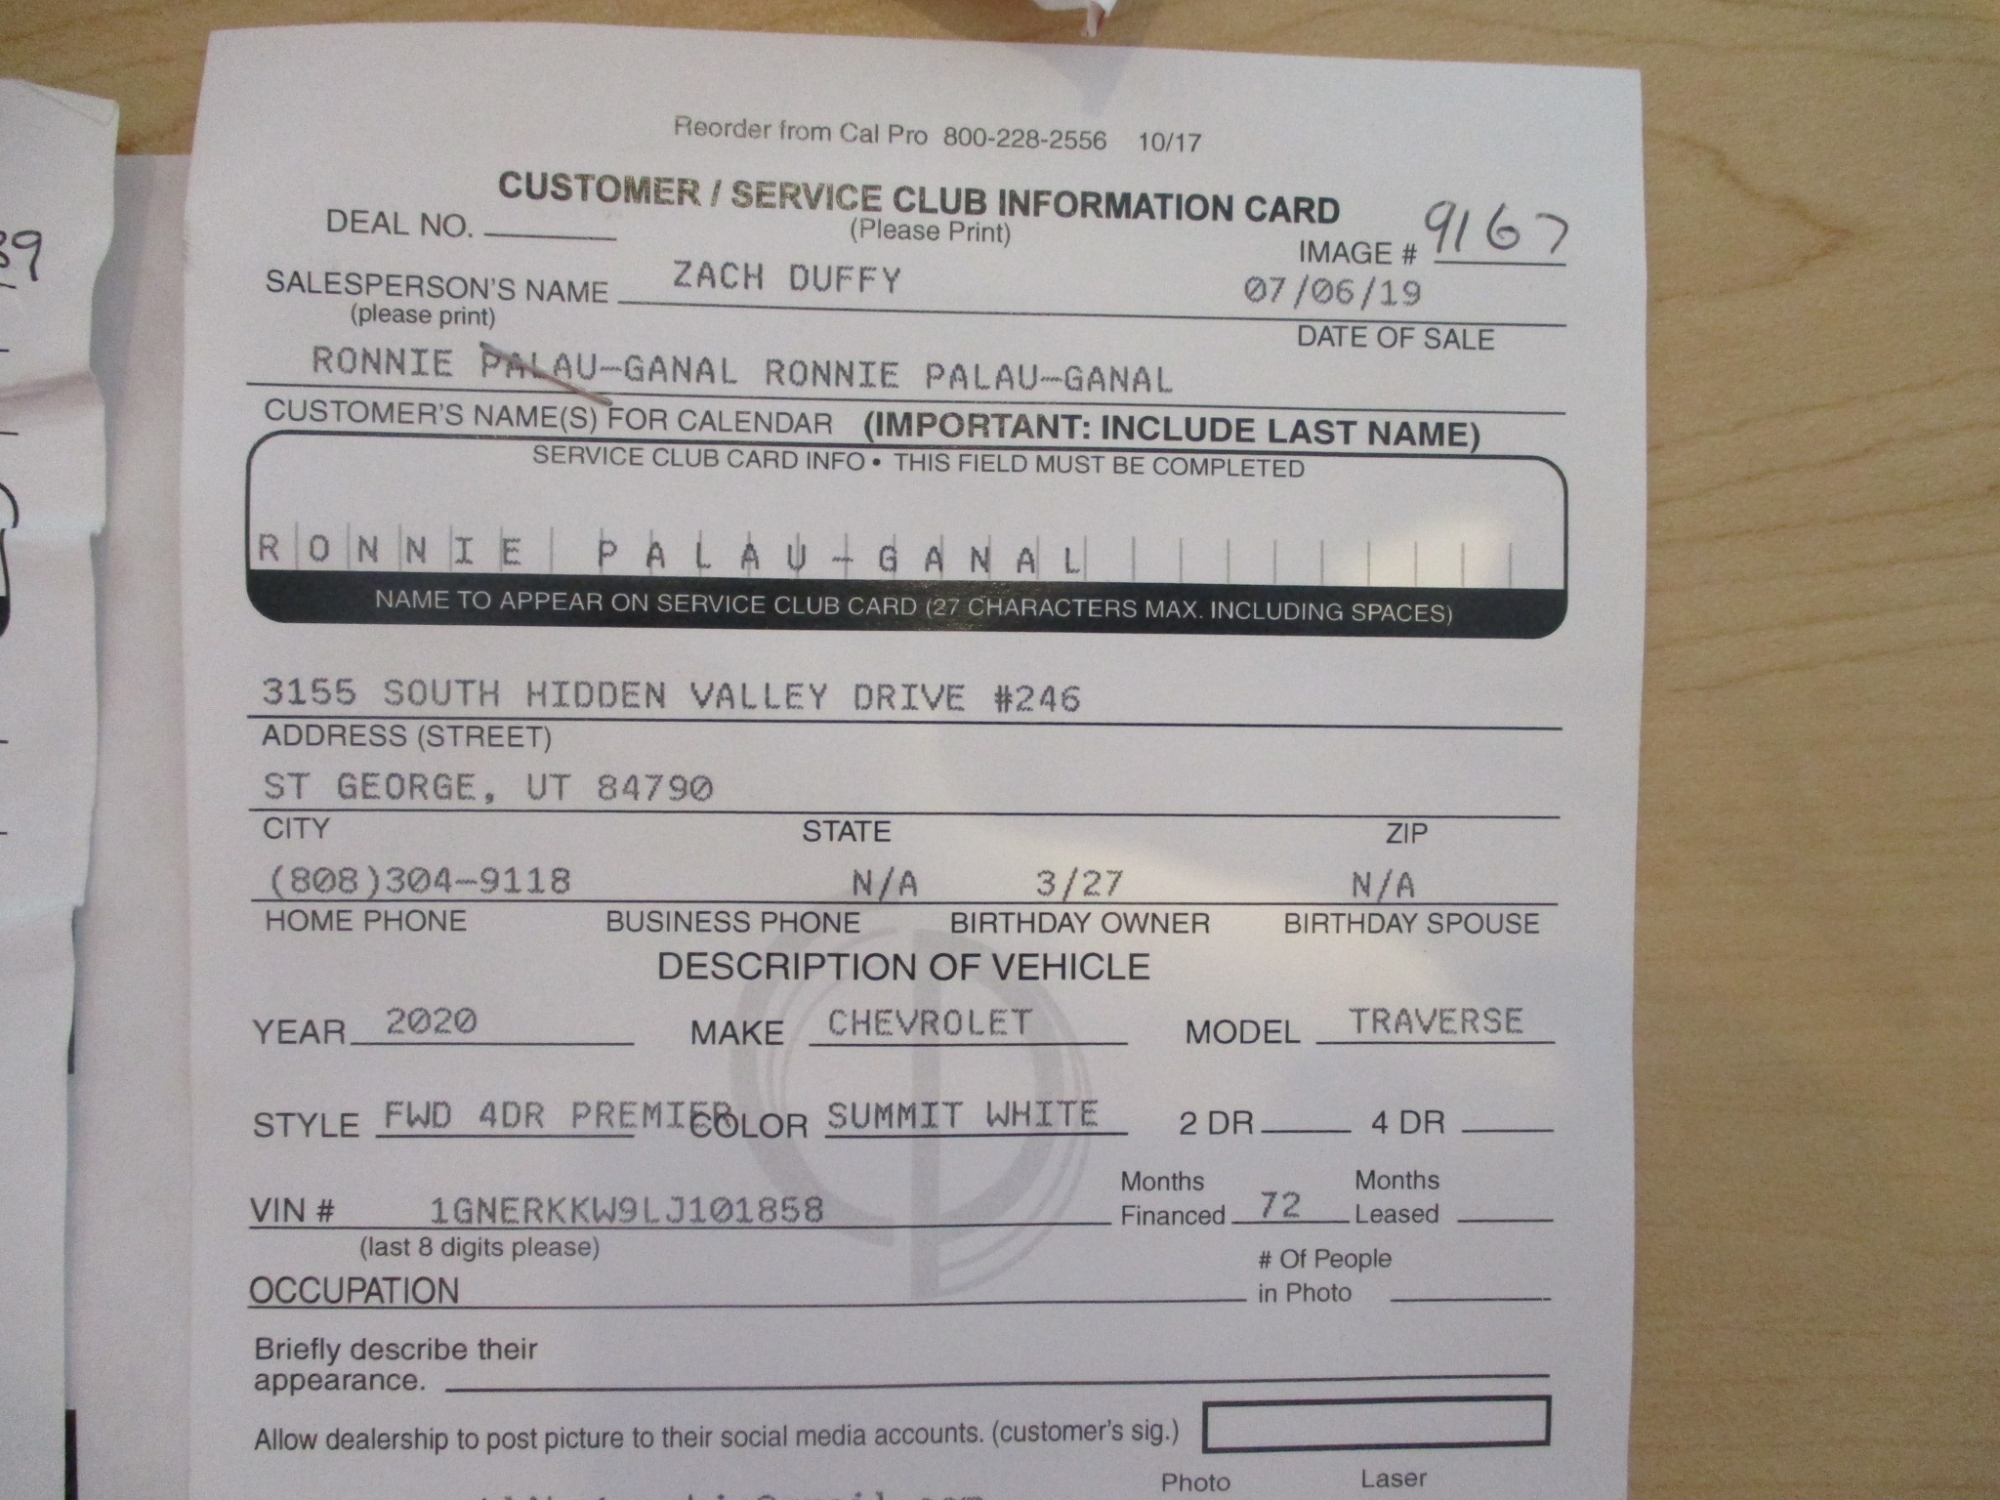 Reorder from Cal Pro 800-228-2556 10/17
CUSTOMER / SERVICE CLUB INFORMATION CARD
DEAL NO. (Please Print) IMAGE # 9167
SALESPERSON'S NAME ZACH DUFFY 07/06/19
(please print) DATE OF SALE
RONNIE PALAU-GANAL RONNIE PALAU-GANAL
CUSTOMER'S NAME(S) FOR CALENDAR (IMPORTANT: INCLUDE LAST NAME)
SERVICE CLUB CARD INFO • THIS FIELD MUST BE COMPLETED
RONNIE PALAU-GANAL
NAME TO APPEAR ON SERVICE CLUB CARD (27 CHARACTERS MAX. INCLUDING SPACES)
3155 SOUTH HIDDEN VALLEY DRIVE #246
ADDRESS (STREET)
ST GEORGE, UT 84790
CITY STATE ZIP
(808)304-9118 N/A 3/27 N/A
HOME PHONE BUSINESS PHONE BIRTHDAY OWNER BIRTHDAY SPOUSE
DESCRIPTION OF VEHICLE
YEAR 2020 MAKE CHEVROLET MODEL TRAVERSE
STYLE FWD 4DR PREMIER COLOR SUMMIT WHITE 2 DR 4 DR
VIN # 1GNERKKW9LJ101858 Months Financed 72 Months Leased
(last 8 digits please)
OCCUPATION # Of People in Photo
Briefly describe their
appearance.
Allow dealership to post picture to their social media accounts. (customer's sig.)
Photo Laser